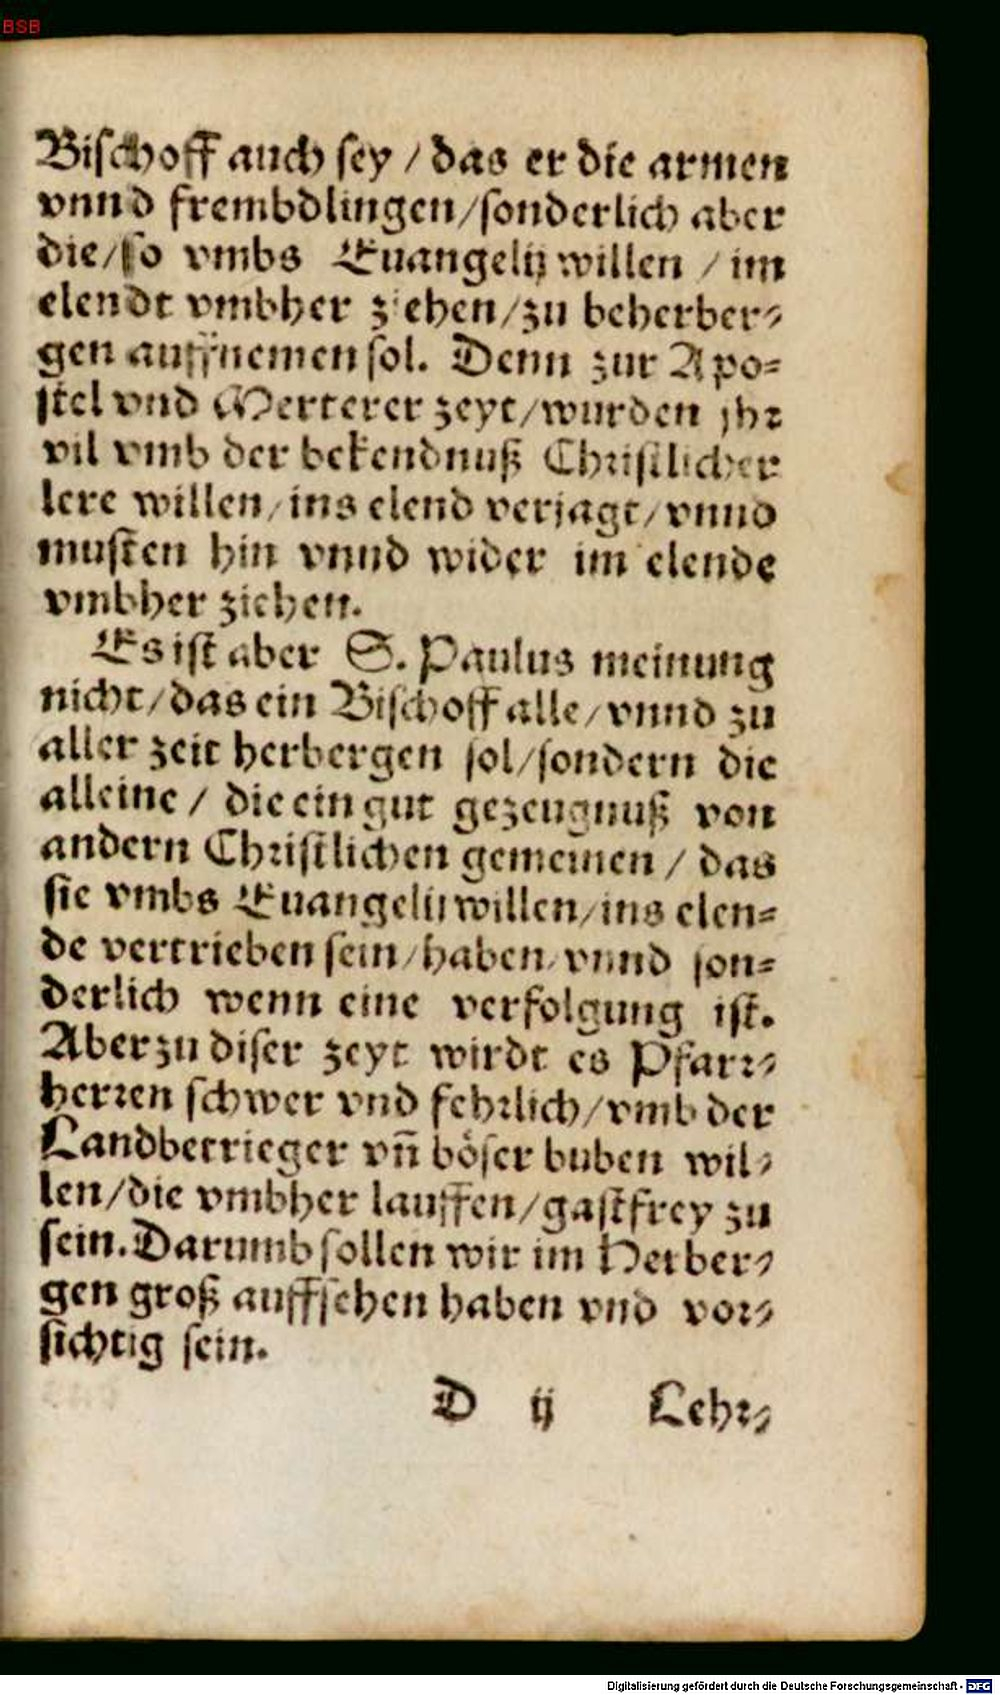 BSB
Bischoff auch sey / das er die armen
vnnd frembdlingen / sonderlich aber
die / so vmbs Euangelij willen / im
elendt vmbher ziehen / zu beherber⸗
gen auffnemen sol. Denn zur Apo⸗
stel vnd Merterer zeyt / wurden jhr
vil vmb der bekendnuß Christlicher
lere willen / ins elend verjagt / vnnd
musten hin vnnd wider im elende
vmbher ziehen.
Es ist aber S. Paulus meinung
nicht / das ein Bischoff alle / vnnd zu
aller zeit herbergen sol / sondern die
alleine / die ein gut gezeugnuß von
andern Christlichen gemeinen / das
sie vmbs Euangelij willen / ins elen⸗
de vertrieben sein / haben / vnnd son⸗
derlich wenn eine verfolgung ist.
Aber zu diser zeyt wirdt es Pfarr⸗
herren schwer vnd fehrlich / vmb der
Landbetrieger vñ böser buben wil⸗
len / die vmbher lauffen / gastfrey zu
sein. Darumb sollen wir im Herber⸗
gen groß auffsehen haben vnd vor⸗
sichtig sein.
D ij Lehr⸗
Digitalisierung gefördert durch die Deutsche Forschungsgemeinschaft - DFG